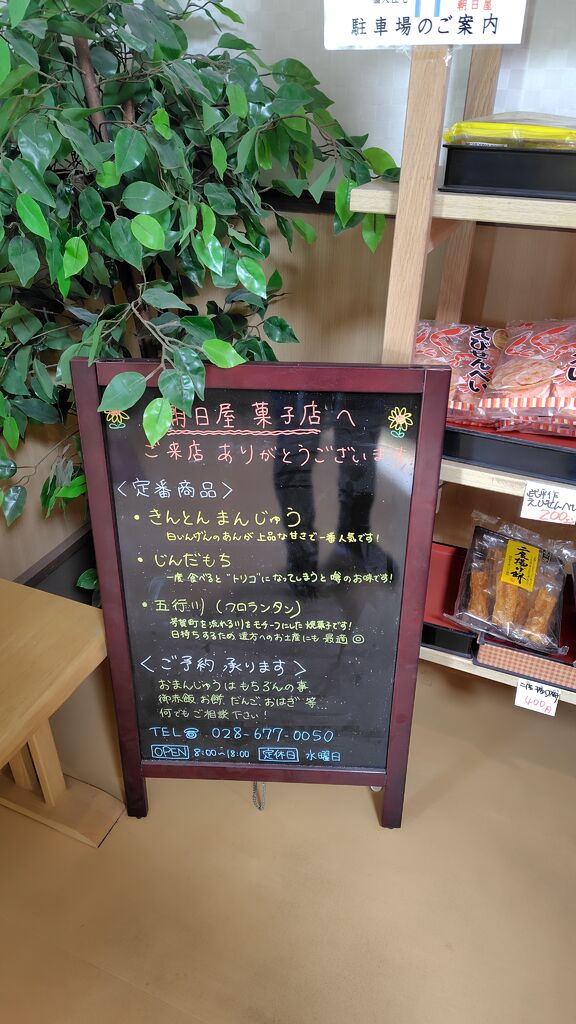 朝日屋
駐車場のご案内
朝日屋 菓子店へ
ご来店 ありがとうございます
＜定番商品＞
・きんとん まんじゅう
白いんげんのあんが 上品な甘さで一番人気です!
・じんだもち
一度 食べると"トリコ"になってしまうと 噂のお味です!
・五行川 (フロランタン)
芳賀町を 流れる川をモチーフにした 焼菓子です!
日持ちするため 遠方へのお土産にも 最適◎
＜ご予約 承ります＞
おまんじゅうは もちろんの事
御赤飯、お餅、だんご、おはぎ 等
何でもご相談 下さい!
TEL☎ 028-677-0050
OPEN 8:00〜18:00 定休日 水曜日
えびせんべい
えびせんべい
200
二度揚げ餅
400円